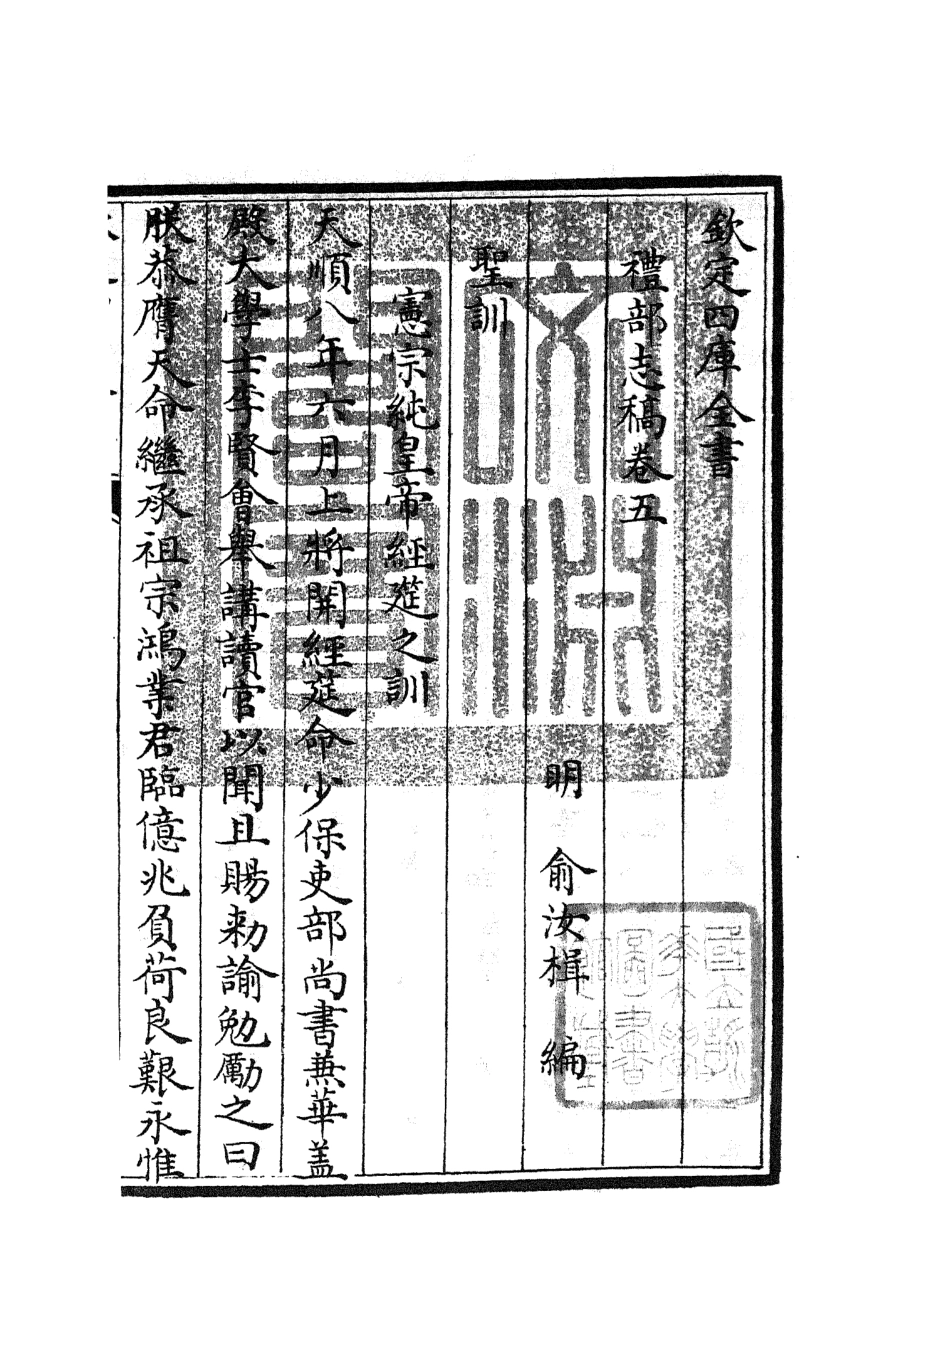 欽定四庫全書
禮部志稿卷五
明 俞汝楫 編
聖訓
憲宗純皇帝經筵之訓
天順八年六月上將開經筵命少保吏部尚書兼華盖
殿大學士李賢會舉講讀官以聞且賜勅諭勉勵之曰
朕恭膺天命繼承祖宗鴻業君臨億兆負荷良艱永惟